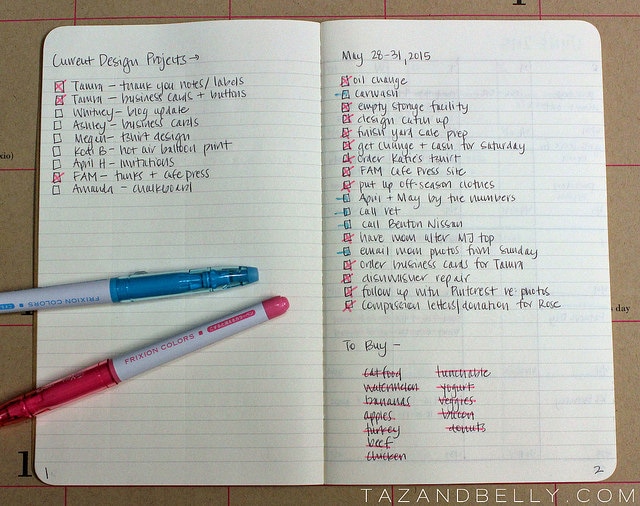 Current Design Projects →
Tamra - thank you notes/labels
Tamra - business cards + buttons
Whitney - blog update
Ashley - business cards
Megan - tshirt design
Kodi B - hot air balloon print
April H - invitations
FAM - tanks + cafe press
Amanda - chalkboard
FRIXION COLORS
FRIXION COLORS
1
May 28-31, 2015
oil change
carwash
empty storage facility
design catch up
finish yard sale prep
get change + cash for Saturday
order Katie's tshirt
FAM Cafe Press site
put up off-season clothes
April + May by the numbers
call vet
call Benton Nissan
have mom alter MJ top
email mom photos from Sunday
order business cards for Tamra
dishwasher repair
follow up with Pinterest re: photos
compassion letters/donation for Rose
To Buy -
cat food
watermelon
bananas
apples
turkey
beef
chicken
lunchable
yogurt
veggies
bacon
donuts
2
1
s day
TAZANDBELLY.COM